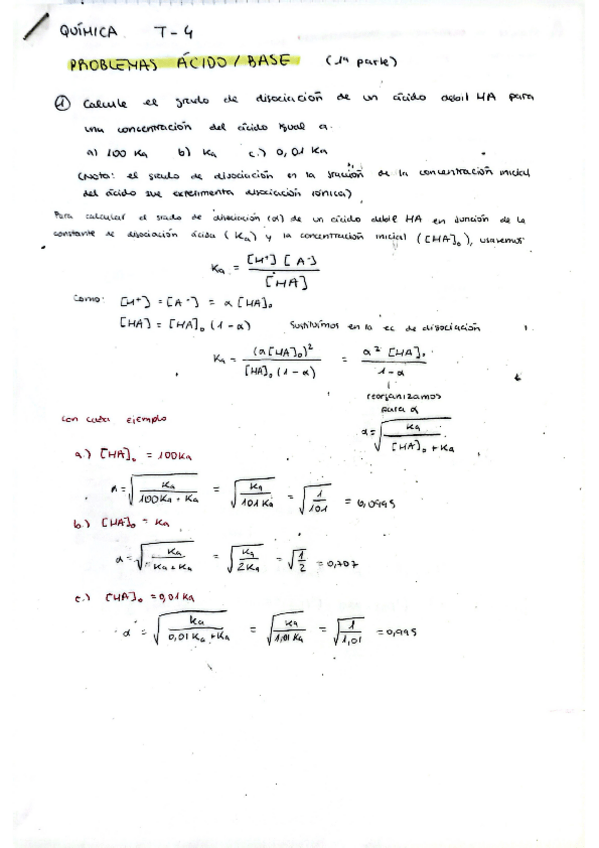 QUÍMICA T-4
PROBLEMAS ÁCIDO/BASE (1ª parte)
① Calcule el grado de disociación de un ácido debil HA para
una concentración del ácido igual a.
a) 100 Ka b) Ka c.) 0,01 Ka
(Nota: el grado de disociación en la fracción de la concentración inicial
del ácido que experimenta disociación iónica)
Para calcular el grado de disociación (α) de un ácido debil HA en función de la
constante de disociación ácida (Ka) y la concentración inicial ([HA]₀), usaremos
Ka = [H⁺] [A⁻] / [HA]
Como: [H⁺] = [A⁻] = α [HA]₀
[HA] = [HA]₀ (1-α) Sustituimos en la ec de disociación
Ka = (α[HA]₀)² / [HA]₀ (1-α) = α² [HA]₀ / 1-α
reorganizamos
para α
α = √(Ka / [HA]₀ + Ka)
Con cada ejemplo
a.) [HA]₀ = 100Ka
α = √(Ka / 100Ka + Ka) = √(Ka / 101 Ka) = √(1 / 101) = 0,0995
b.) [HA]₀ = Ka
α = √(Ka / Ka + Ka) = √(Ka / 2Ka) = √(1 / 2) = 0,707
c.) [HA]₀ = 0,01 Ka
α = √(Ka / 0,01 Ka + Ka) = √(Ka / 1,01 Ka) = √(1 / 1,01) = 0,995